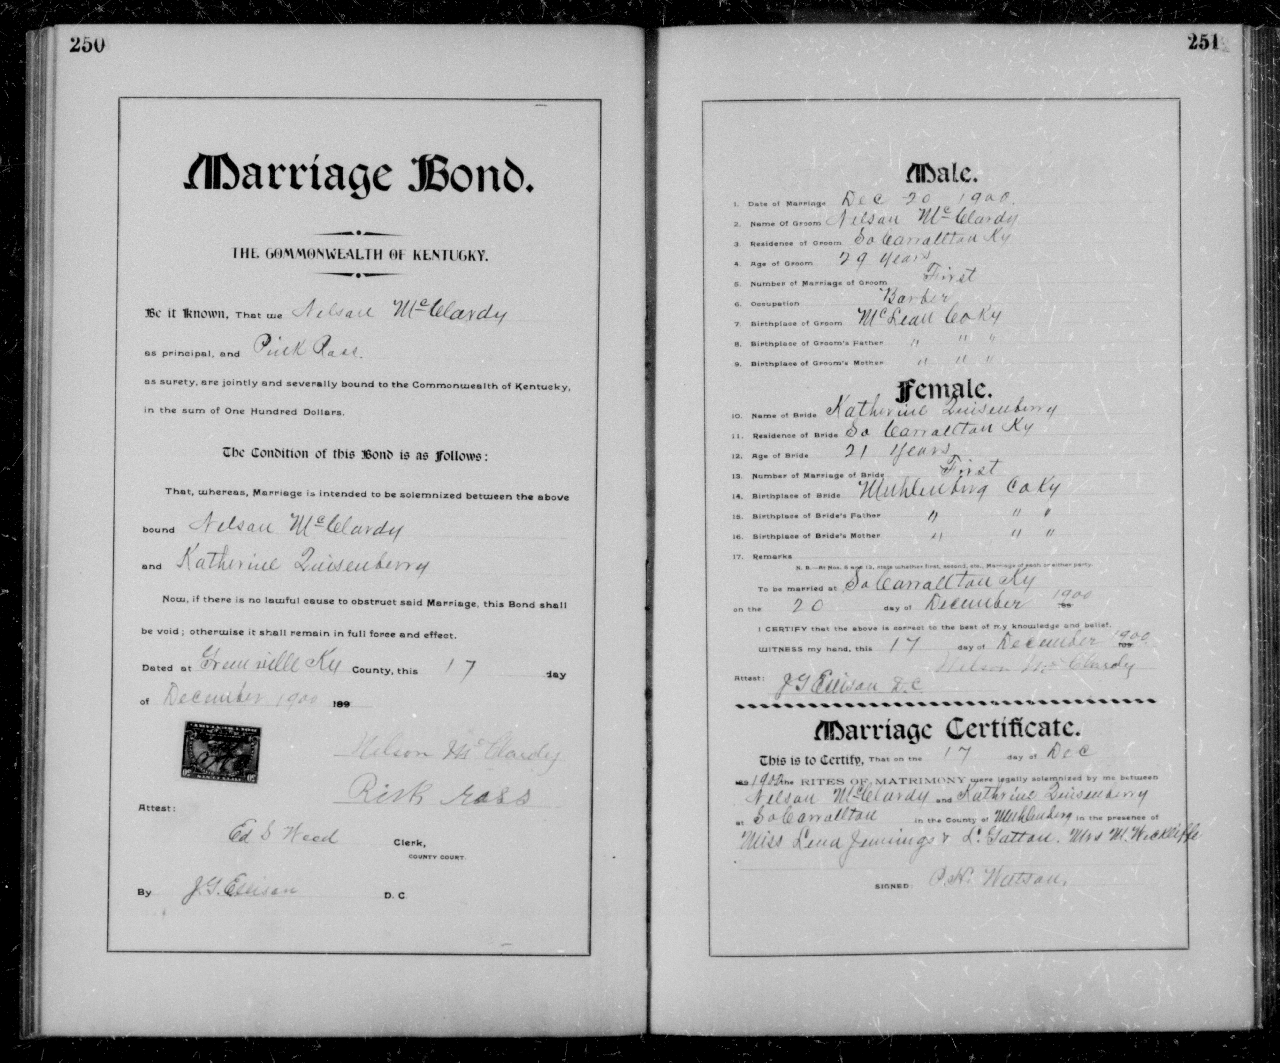 250
Marriage Bond.
THE COMMONWEALTH OF KENTUCKY.
Be it Known, That we Nelson McClardy
as principal, and Pink Ross.
as surety, are jointly and severally bound to the Commonwealth of Kentucky,
in the sum of One Hundred Dollars.
The Condition of this Bond is as Follows:
That, whereas, Marriage is intended to be solemnized between the above
bound Nelson McClardy
and Katherine Quisenberry
Now, if there is no lawful cause to obstruct said Marriage, this Bond shall
be void; otherwise it shall remain in full force and effect.
Dated at Greenville Ky County, this 17 day
of December 1900 189
Nelson Mc Clardy
Ross
Attest:
Ed S Wood Clerk,
COUNTY COURT.
By J.G. Ellison D. C.
251
Male.
1. Date of Marriage Dec 20 1900.
2. Name Of Groom Nelson McClardy
3. Residence of Groom So Carrallton Ky
4. Age of Groom 29 years
5. Number of Marriage of Groom First
6. Occupation Barber
7. Birthplace of Groom McLean Co Ky
8. Birthplace of Groom's Father " " "
9. Birthplace of Groom's Mother " " "
Female.
10. Name of Bride Katherine Quisenberry
11. Residence of Bride So Carrallton Ky
12. Age of Bride 21 years
13. Number of Marriage of Bride First
14. Birthplace of Bride Muhlenberg Co Ky
15. Birthplace of Bride's Father " " "
16. Birthplace of Bride's Mother " " "
17. Remarks
N. B.—At Nos. 5 and 13, state whether first, second, etc., Marriage of each or either party.
To be married at So Carrallton Ky
on the 20 day of December 1900
I CERTIFY that the above is correct to the best of my knowledge and belief.
WITNESS my hand, this 17 day of December 1900.
Nelson Mc Clardy
Attest: J G Ellison D.C
Marriage Certificate.
This is to Certify, That on the 17 day of Dec
189 1900 the RITES OF MATRIMONY were legally solemnized by me between
Nelson McClardy and Kathrine Quisenberry
at So Carrallton in the County of Muhlenberg in the presence of
Miss Lena Jennings & L. Gatton. Mrs M. Wickliffe
SIGNED: P.H. Watson.